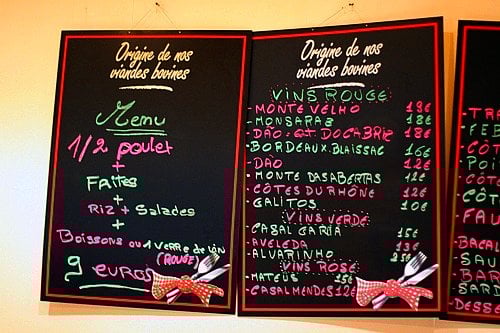 Origine de nos
viandes bovines
Menu
1/2 poulet
+
Frites
+
Riz + Salades
+
Boissons ou 1 verre de vin
(ROUGE)
9 euros
Origine de nos
viandes bovines
VINS ROUGE
- MONTE VELHO 18€
- MONSARAS 18€
- DÃO: QT. DO CABRIZ 18€
- BORDEAUX.BLAISSAC 16€
- DÃO 12€
- MONTE DAS ABERTAS 12€
- CÔTES DU RHÔNE 12€
- GALITOS 10€
VINS VERDE
- CASAL GARIA 15€
- AVELEDA 13€
- ALVARINHO 25€
VINS ROSE
- MATEUS 15€
- CASALMENDES 12€